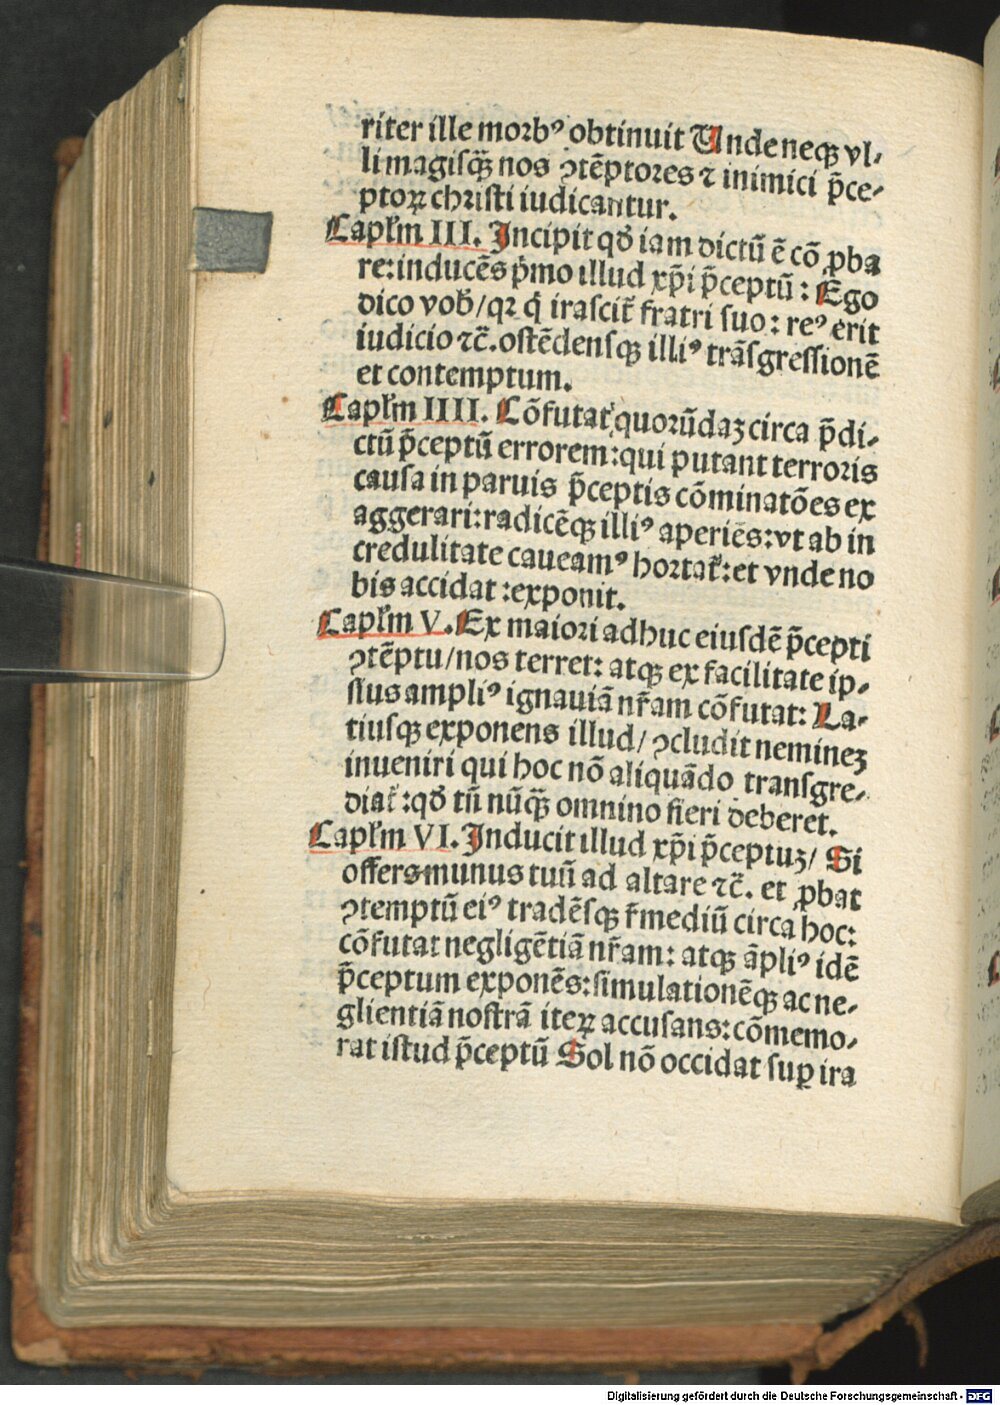 riter ille morbꝰ obtinuit Unde neqꝫ vl-
li magiſq̈ꝫ nos ꝯtēptores ⁊ inimici p̄ce-
ptoꝝ chriſti iudicantur.
Capl'm III. Incipit qd̓ iam dictū ē cō ꝓba
re: inducēs p̓mo illud xp̄i p̄ceptū: Ego
dico vob̓/ qꝛ q̓ iraſcit᷑ fratri ſuo: reꝰ erit
iudicio ⁊c̄. oſtēdenſqꝫ illiꝰ trāſgreſſionē
et contemptum.
Capl'm IIII. Cōfutat᷑ quorūdaꝫ circa p̄di-
ctū p̄ceptū errorem: qui putant terroris
cauſa in paruis p̄ceptis cōminatōes ex
aggerari: radicēqꝫ illiꝰ aperiēs: vt ab in
credulitate caueamꝰ hortat᷑: et vnde no
bis accidat: exponit.
Capl'm V. Ex maiori adhuc eiuſdē p̄cepti
ꝯtēptu/ nos terret: atqꝫ ex facilitate ip-
ſius ampliꝰ ignauiā nr̄am cōfutat: La-
tiuſqꝫ exponens illud/ ꝯcludit nemineꝫ
inueniri qui hoc nō aliquādo tranſgre-
diat᷑: qd̓ tn̄ nūq̈ꝫ omnino fieri deberet.
Capl'm VI. Inducit illud xp̄i p̄ceptuꝫ/ Si
offers munus tuū ad altare ⁊c̄. et ꝓbat
ꝯtemptū eiꝰ tradēſqꝫ r̄mediū circa hoc:
cōfutat negligētiā nr̄am: atqꝫ āpliꝰ idē
p̄ceptum exponēs: ſimulationēqꝫ ac ne-
glientiā noſtrā iteꝝ accuſans: cōmemo-
rat iſtud p̄ceptū Sol nō occidat ſuꝑ ira
Digitalisierung gefördert durch die Deutsche Forschungsgemeinschaft - DFG